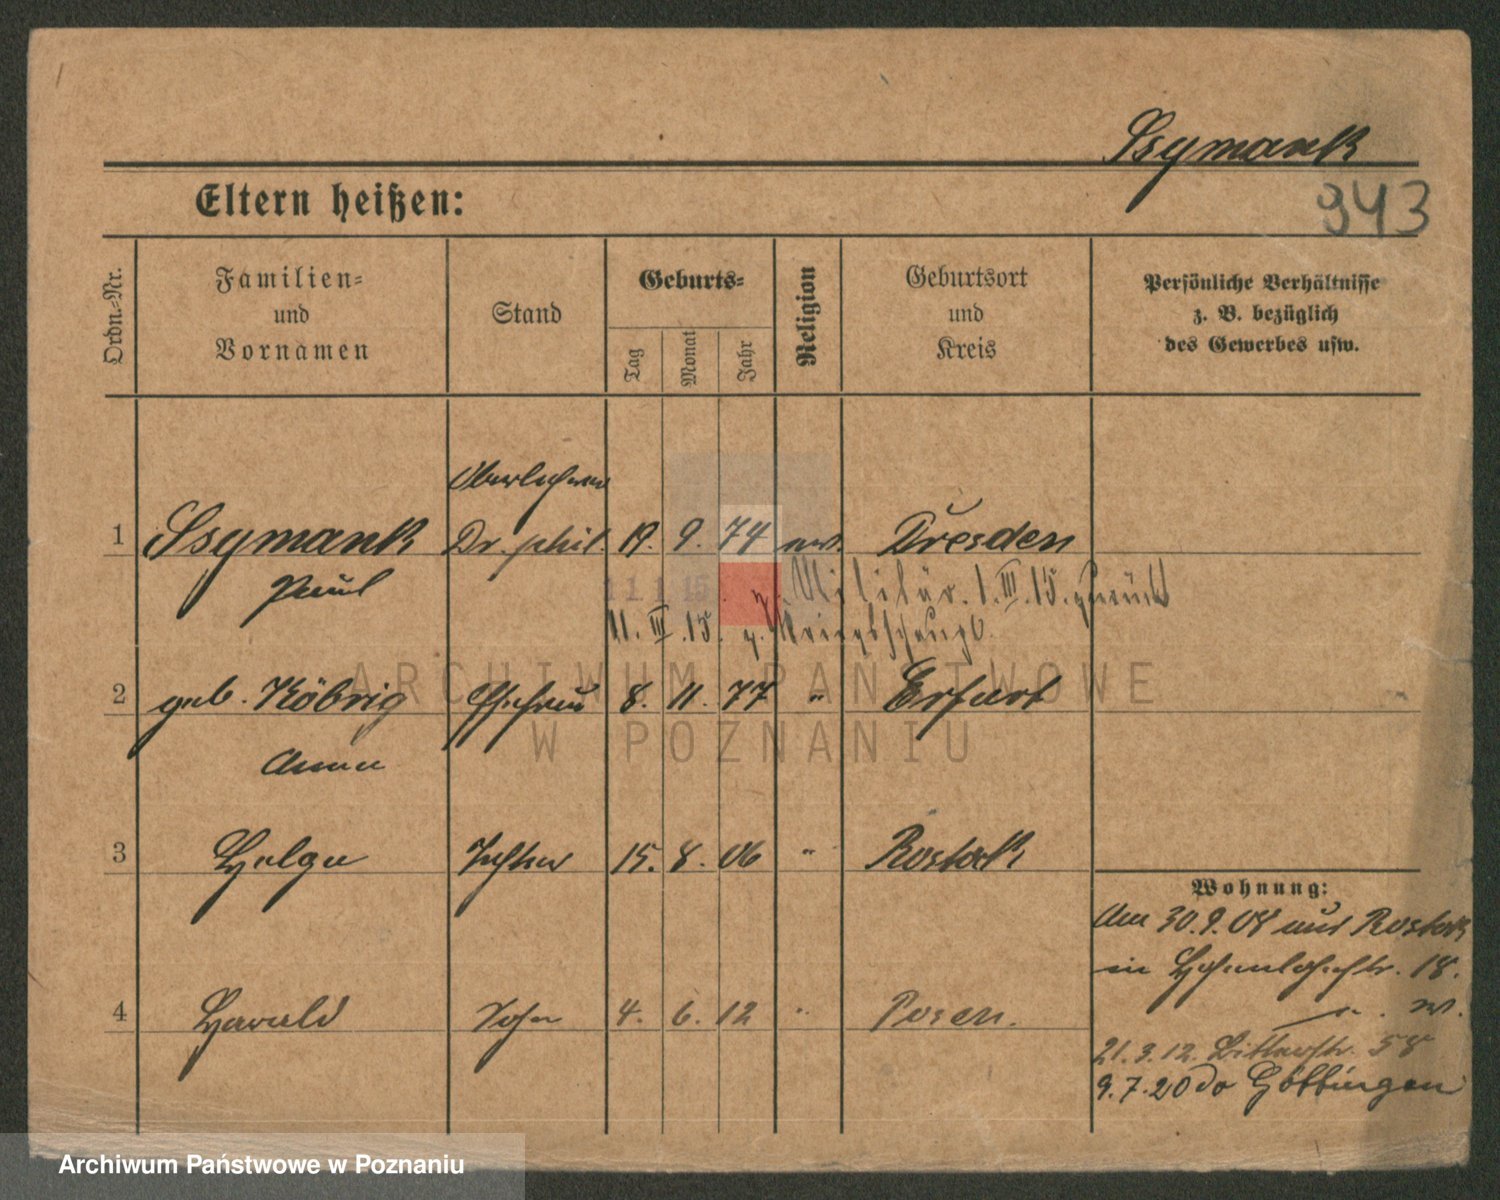 Ssymank
943
Eltern heißen:
Ordn.-Nr.
Familien-
und
Vornamen
Stand
Geburts-
Tag
Monat
Jahr
Religion
Geburtsort
und
Kreis
Persönliche Verhältnisse
z. B. bezüglich
des Gewerbes usw.
Oberlehrer
1 Ssymank Dr. phil. 19. 9. 74 ev. Dresden
Paul
11.1.15. z. Militär. 1.III.15. zurück
11.III.15. z.
2 geb. Köbrig Ehefrau 8. 11. 77 " Erfurt
Anna
3 Helga Tochter 15. 8. 06 " Rostock
Wohnung:
Am 30.9.08 aus Rostock
in Hohenlohestr. 18.
4 Harald Sohn 4. 6. 12 " Posen.
21.3.12. Bitterstr. 58
9.7.20 do Göttingen
ARCHIWUM PAŃSTWOWE
W POZNANIU
Archiwum Państwowe w Poznaniu